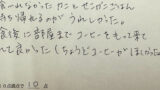 食べれなかった かこと せんかごはん
持ち帰れるのが うれしかった。
食後に 部屋まで コーヒーをもって来て
れて良かった(ちょうどコーヒーがほしかった
10点満点で 10 点